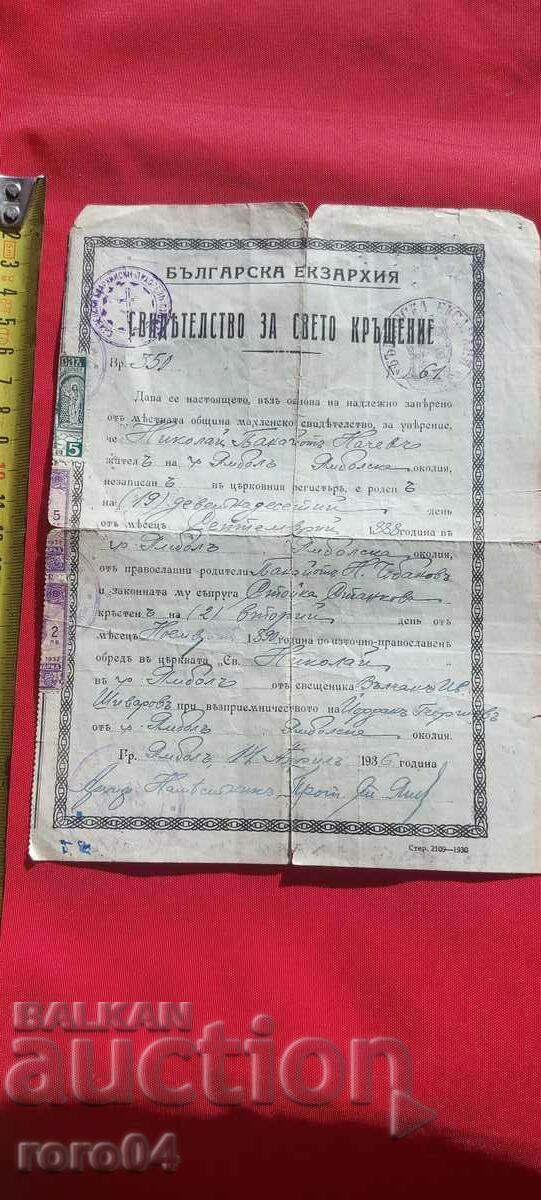 БЪЛГАРСКА ЕКЗАРХИЯ
СВИДѢТЕЛСТВО ЗА СВЕТО КРЪЩЕНИЕ
Бр. 350
61
Дава се настоящето, възъ основа на надлежно заверено
отъ мѣстната община махленско свидѣтелство, за уверение,
че Николай Начевъ
жител ъ на гр. Ямболъ Ямболска околия,
незаписан ъ въ църковния регистъръ, е роден ъ
на (19) деветнадесетий день
отъ месецъ Септемврий година въ
гр. Ямболъ Ямболска околия,
отъ православни родители Н. Чобановъ
и законната му съпруга Стойка Станкова
кръстен ъ на (2) вторий день отъ
месецъ Ноемврий година по източно-православенъ
обредъ въ църквата „Св. Николай "
въ гр. Ямболъ отъ свещеника Вълчанъ Ив.
Шиваровъ при възприемничеството на Йорданъ Георгиевъ
отъ гр. Ямболъ Ямболска околия.
Гр. Ямболъ, 14 Априлъ 1936 година
Стер. 2109—1930
5
5
2
1932
BALKAN
auction
roro04